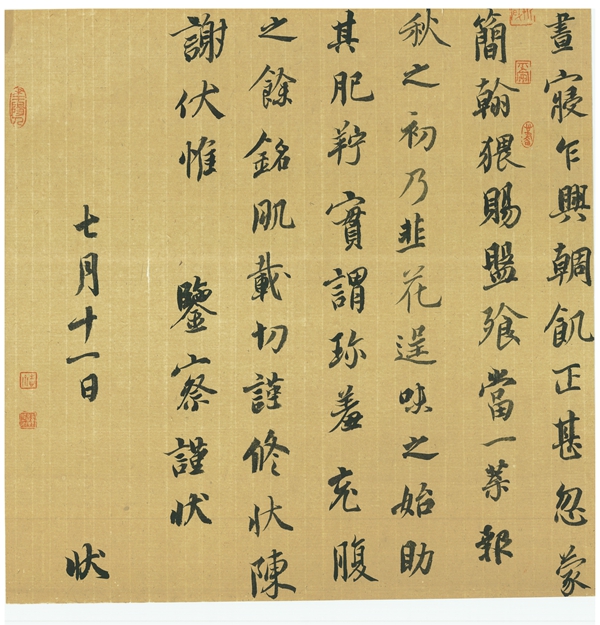 晝寢乍興輖飢正甚忽蒙
簡翰猥賜盤飧當一葉報
秋之初乃韭花逞味之始助
其肥羜實謂珍羞充腹
之餘銘肌載切謹修狀陳
謝伏惟　鑒察謹狀
七月十一日　狀